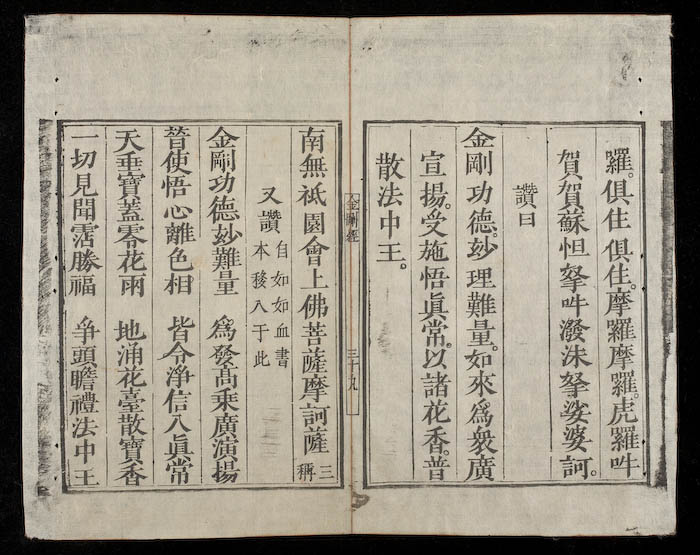 羅。俱住俱住。摩羅摩羅。虎羅吽
賀賀蘇怛拏吽潑沬拏娑婆訶。
讚曰
金剛功德。玅理難量。如來爲衆廣
宣揚。受施悟眞常。以諸花香。普
散法中王。
金剛經
三十九
南無祇園會上佛菩薩摩訶薩 三稱
又讚 自如如血書
本移入于此
金剛功德玅難量 爲發高乘廣演揚
普使悟心離色相 皆令淨信入眞常
天垂寶蓋零花雨 地涌花臺散寶香
一切見聞霑勝福 爭頭瞻禮法中王